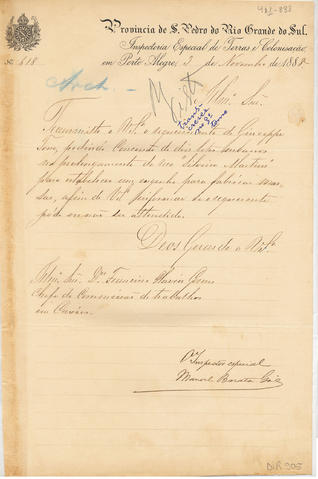 421-888
Provincia de S. Pedro do Rio Grande do Sul.
Inspectoria Especial de Terras e Colonisação,
em Porto Alegre, 2 de Novembro de 1888
Nº 618
Arch
Illmº. Snr.
Transmitto a VSª. o requerimento de Giuseppe
pedindo concessão de dois lotes urbanos
no prolongamento da rua Silveira Martins
para estabelecer um engenho para fabricar
afim de VSª informar se o requerente
pode ou não ser attendido.
Deos Guarde a VSª.
Illmº. Snr. Dr. Francisco
Chefe da Commissão de trabalhos
em Caxias
O Inspector especial
Manoel Barata Góes
DIR 905